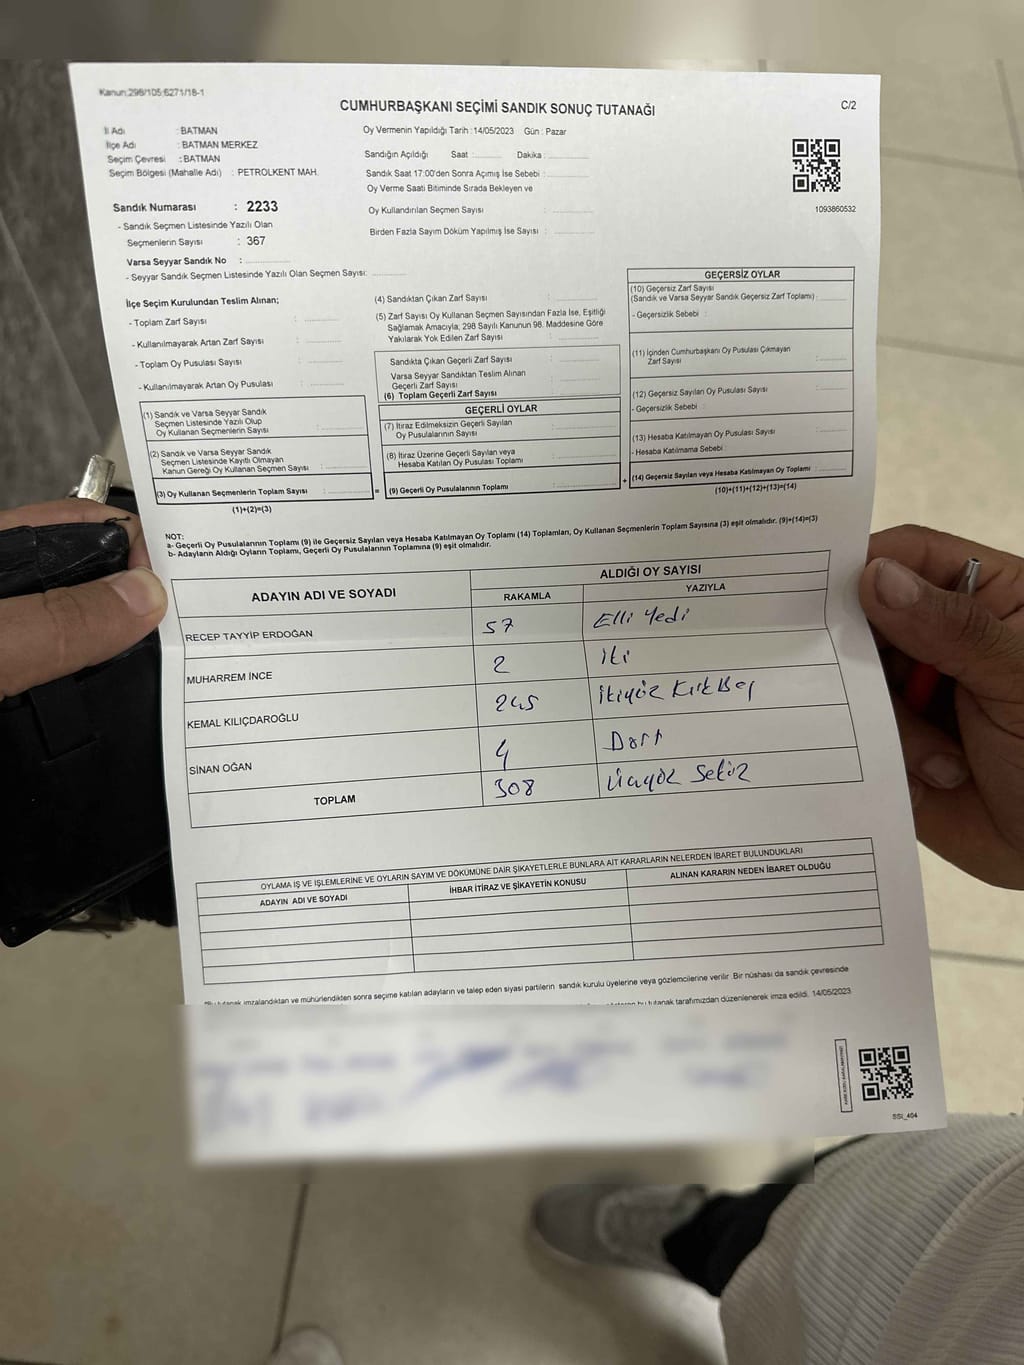 Kanun:298/105;6271/18-1
CUMHURBAŞKANI SEÇİMİ SANDIK SONUÇ TUTANAĞI
C/2
İl Adı : BATMAN
İlçe Adı : BATMAN MERKEZ
Seçim Çevresi : BATMAN
Seçim Bölgesi (Mahalle Adı) : PETROLKENT MAH.
Oy Vermenin Yapıldığı Tarih : 14/05/2023 Gün : Pazar
Sandığın Açıldığı Saat :.......... Dakika :..........
Sandık Saat 17:00'den Sonra Açımış İse Sebebi :..........
Oy Verme Saati Bitiminde Sırada Bekleyen ve
Oy Kullandırılan Seçmen Sayısı : ..........
Birden Fazla Sayım Döküm Yapılmış İse Sayısı : ..........
1093860532
Sandık Numarası : 2233
- Sandık Seçmen Listesinde Yazılı Olan
Seçmenlerin Sayısı : 367
Varsa Seyyar Sandık No : ..........
- Seyyar Sandık Seçmen Listesinde Yazılı Olan Seçmen Sayısı: ..........
İlçe Seçim Kurulundan Teslim Alınan;
- Toplam Zarf Sayısı : ..........
- Kullanılmayarak Artan Zarf Sayısı : ..........
- Toplam Oy Pusulası Sayısı : ..........
- Kullanılmayarak Artan Oy Pusulası : ..........
(1) Sandık ve Varsa Seyyar Sandık
Seçmen Listesinde Yazılı Olup
Oy Kullanan Seçmenlerin Sayısı : ..........
(2) Sandık ve Varsa Seyyar Sandık
Seçmen Listesinde Kayıtlı Olmayan
Kanun Gereği Oy Kullanan Seçmen Sayısı : ..........
(3) Oy Kullanan Seçmenlerin Toplam Sayısı : ..........
(1)+(2)=(3)
(4) Sandıktan Çıkan Zarf Sayısı : ..........
(5) Zarf Sayısı Oy Kullanan Seçmen Sayısından Fazla İse, Eşitliği
Sağlamak Amacıyla; 298 Sayılı Kanunun 98. Maddesine Göre
Yakılarak Yok Edilen Zarf Sayısı : ..........
Sandıkta Çıkan Geçerli Zarf Sayısı : ..........
Varsa Seyyar Sandıktan Teslim Alınan
Geçerli Zarf Sayısı : ..........
(6) Toplam Geçerli Zarf Sayısı : ..........
GEÇERLİ OYLAR
(7) İtiraz Edilmeksizin Geçerli Sayılan
Oy Pusulalarının Sayısı : ..........
(8) İtiraz Üzerine Geçerli Sayılan veya
Hesaba Katılan Oy Pusulası Toplamı : ..........
= (9) Geçerli Oy Pusulalarının Toplamı : ..........
GEÇERSİZ OYLAR
(10) Geçersiz Zarf Sayısı
(Sandık ve Varsa Seyyar Sandık Geçersiz Zarf Toplamı) : ..........
- Geçersizlik Sebebi :
(11) İçinden Cumhurbaşkanı Oy Pusulası Çıkmayan
Zarf Sayısı : ..........
(12) Geçersiz Sayılan Oy Pusulası Sayısı : ..........
- Geçersizlik Sebebi :
(13) Hesaba Katılmayan Oy Pusulası Sayısı : ..........
- Hesaba Katılmama Sebebi :
+ (14) Geçersiz Sayılan veya Hesaba Katılmayan Oy Toplamı : ..........
(10)+(11)+(12)+(13)=(14)
NOT:
a- Geçerli Oy Pusulalarının Toplamı (9) ile Geçersiz Sayılan veya Hesaba Katılmayan Oy Toplamı (14) Toplamları, Oy Kullanan Seçmenlerin Toplam Sayısına (3) eşit olmalıdır. (9)+(14)=(3)
b- Adayların Aldığı Oyların Toplamı, Geçerli Oy Pusulalarının Toplamına (9) eşit olmalıdır.
ADAYIN ADI VE SOYADI
ALDIĞI OY SAYISI
RAKAMLA YAZIYLA
RECEP TAYYİP ERDOĞAN 57 Elli Yedi
MUHARREM İNCE 2 İki
KEMAL KILIÇDAROĞLU 245 İkiyüz Kırk Beş
SİNAN OĞAN 4 Dört
TOPLAM 308 Üçyüz Sekiz
OYLAMA İŞ VE İŞLEMLERİNE VE OYLARIN SAYIM VE DÖKÜMÜNE DAİR ŞİKAYETLERLE BUNLARA AİT KARARLARIN NELERDEN İBARET BULUNDUKLARI
ADAYIN ADI VE SOYADI İHBAR İTİRAZ VE ŞİKAYETİN KONUSU ALINAN KARARIN NEDEN İBARET OLDUĞU
tutanak imzalandıktan ve mühürlendikten sonra seçime katılan adayların ve talep eden siyasi partilerin sandık kurulu üyelerine veya gözlemcilerine verilir. Bir nüshası da sandık çevresinde
bu tutanak tarafımızdan düzenlenerek imza edildi. 14/05/2023
SSI_404